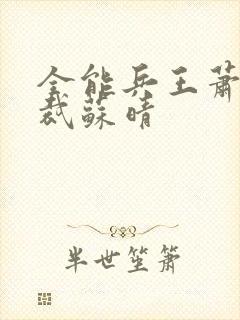 全能兵王萧
裁苏晴
半世笙箫